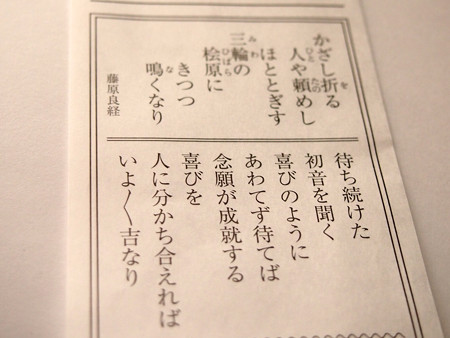 かざし折る
人や頼めし
ほととぎす
三輪の
桧原に
きつつ
鳴くなり
藤原良経
待ち続けた
初音を聞く
喜びのように
あわてず待てば
念願が成就する
喜びを
人に分かち合えれば
いよ〳〵吉なり